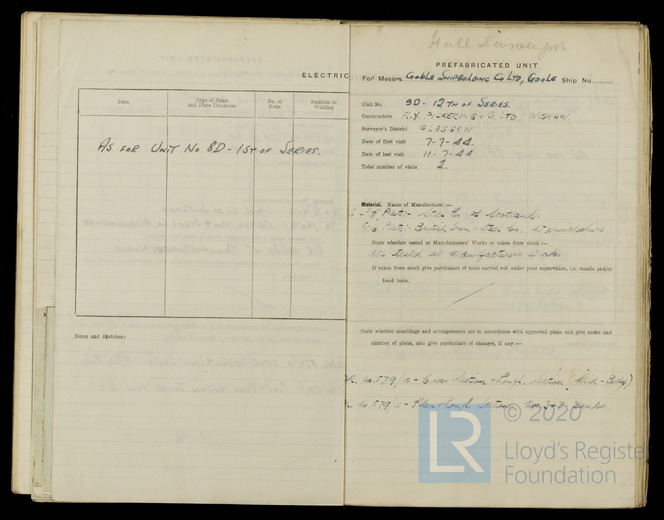 ELECTRIC
Item
Type of Seam and Plate Thickness
No. of
Position of Welding
AS FOR UNIT NO 8D - 1ST OF SERIES.
Notes and Sketches:
Hull Surveyors
PREFABRICATED UNIT.
For Messrs. GOOLE SHIPBUILDING CO LTD, GOOLE Ship No.
Unit No. 9D - 12TH OF SERIES.
Constructors R.Y. PICKERING & CO LTD WISHAW.
Surveyor's District GLASGOW
Date of first visit 7-7-44.
Date of last visit 11-7-44
Total number of visits 2.
Material. Name of Manufacturer:—
Plate: - Steel Co of Scotland.
Plate: British Iron & Steel Co.
State whether tested at Manufacturers' Works or taken from stock:—
All tested at Manufacturers Works
If taken from stock give particulars of tests carried out under your supervision, i.e. tensile and/or
bend tests.
State whether scantlings and arrangements are in accordance with approved plans and give name and
number of plans, also give particulars of changes, if any:—
No. 579/10 - Cross Section & Long'l. Section (Mid-Body)
No. 579/11 - Plan & Long'l. Sections Nos 2 & 3 Tanks
© 2020
LR
Lloyd's Register
Foundation